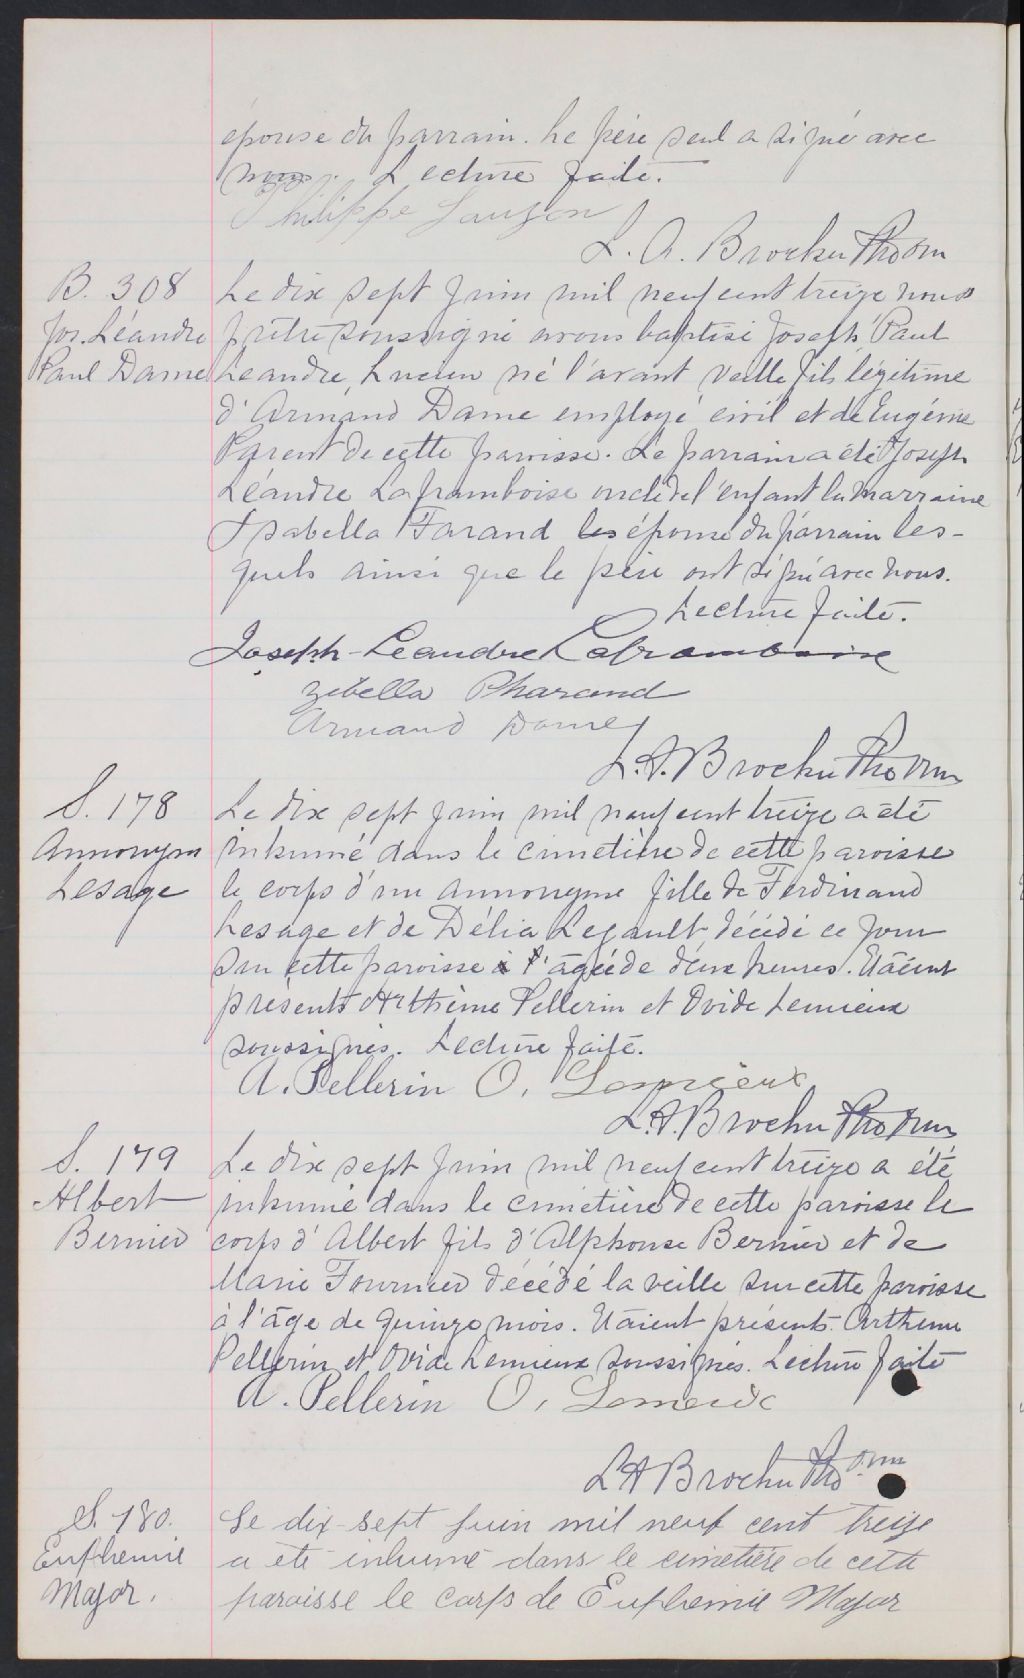 épouse du parrain. Le père seul a signé avec
nous. Lecture faite.
Philippe Lauzon
L. A. Brochu Ptre
B. 308
Jos. Léandre
Paul Dame
Le dix sept juin mil neuf cent treize nous
prêtre soussigné avons baptisé Joseph Paul
Leandre Lucien né l'avant veille fils légitime
d'Armand Dame employé civil et de Eugénie
Parent de cette paroisse. Le parrain a été Joseph
Léandre Laframboise oncle de l'enfant la marraine
Isabella Farand les épouse du parrain les-
quels ainsi que le père ont signé avec nous.
Lecture faite.
Joseph-Leandre Laframboise
Zebella Pharand
Armand Dame
L. A. Brochu Ptre
S. 178
Annonyme
Lesage
Le dix sept juin mil neuf cent treize a été
inhumé dans le cimetière de cette paroisse
le corps d'un annonyme fille de Ferdinand
Lesage et de Délia Legault décédé ce jour
sur cette paroisse à l'âgée de deux heures. Etaient
présents Arthème Pellerin et Ovide Lemieux
soussignés. Lecture faite.
A. Pellerin O. Lemieux
L. A. Brochu Ptre
S. 179
Albert
Bernier
Le dix sept juin mil neuf cent treize a été
inhumé dans le cimetière de cette paroisse le
corps d'Albert fils d'Alphonse Bernier et de
Marie Fournier décédé la veille sur cette paroisse
à l'âge de quinze mois. Etaient présents Arthème
Pellerin et Ovide Lemieux soussignés. Lecture faite
A. Pellerin O. Lemieux
L A Brochu Ptre
S. 180.
Euphemie
Major.
Le dix-sept juin mil neuf cent treize
a été inhumé dans le cimetière de cette
paroisse le corps de Euphemie Major